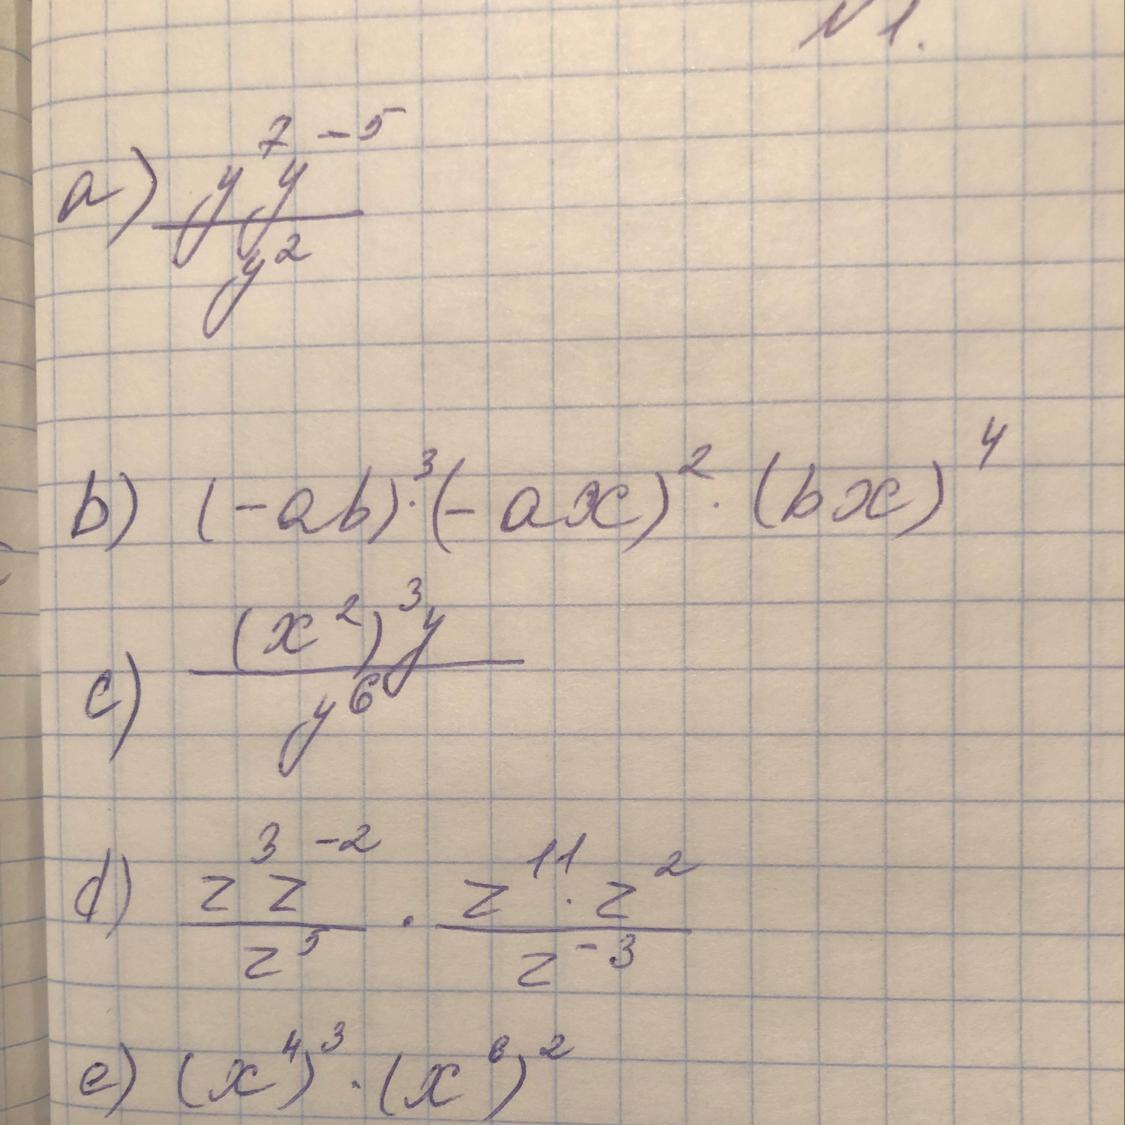 N 1.
a) y⁷y⁻⁵
y²
b) (-ab)·³(-ax)²·(bx)⁴
c) (x²)³y
y⁶
d) z³z⁻² · z¹¹·z²
z⁵ z⁻³
e) (x⁴)³·(x⁶)²